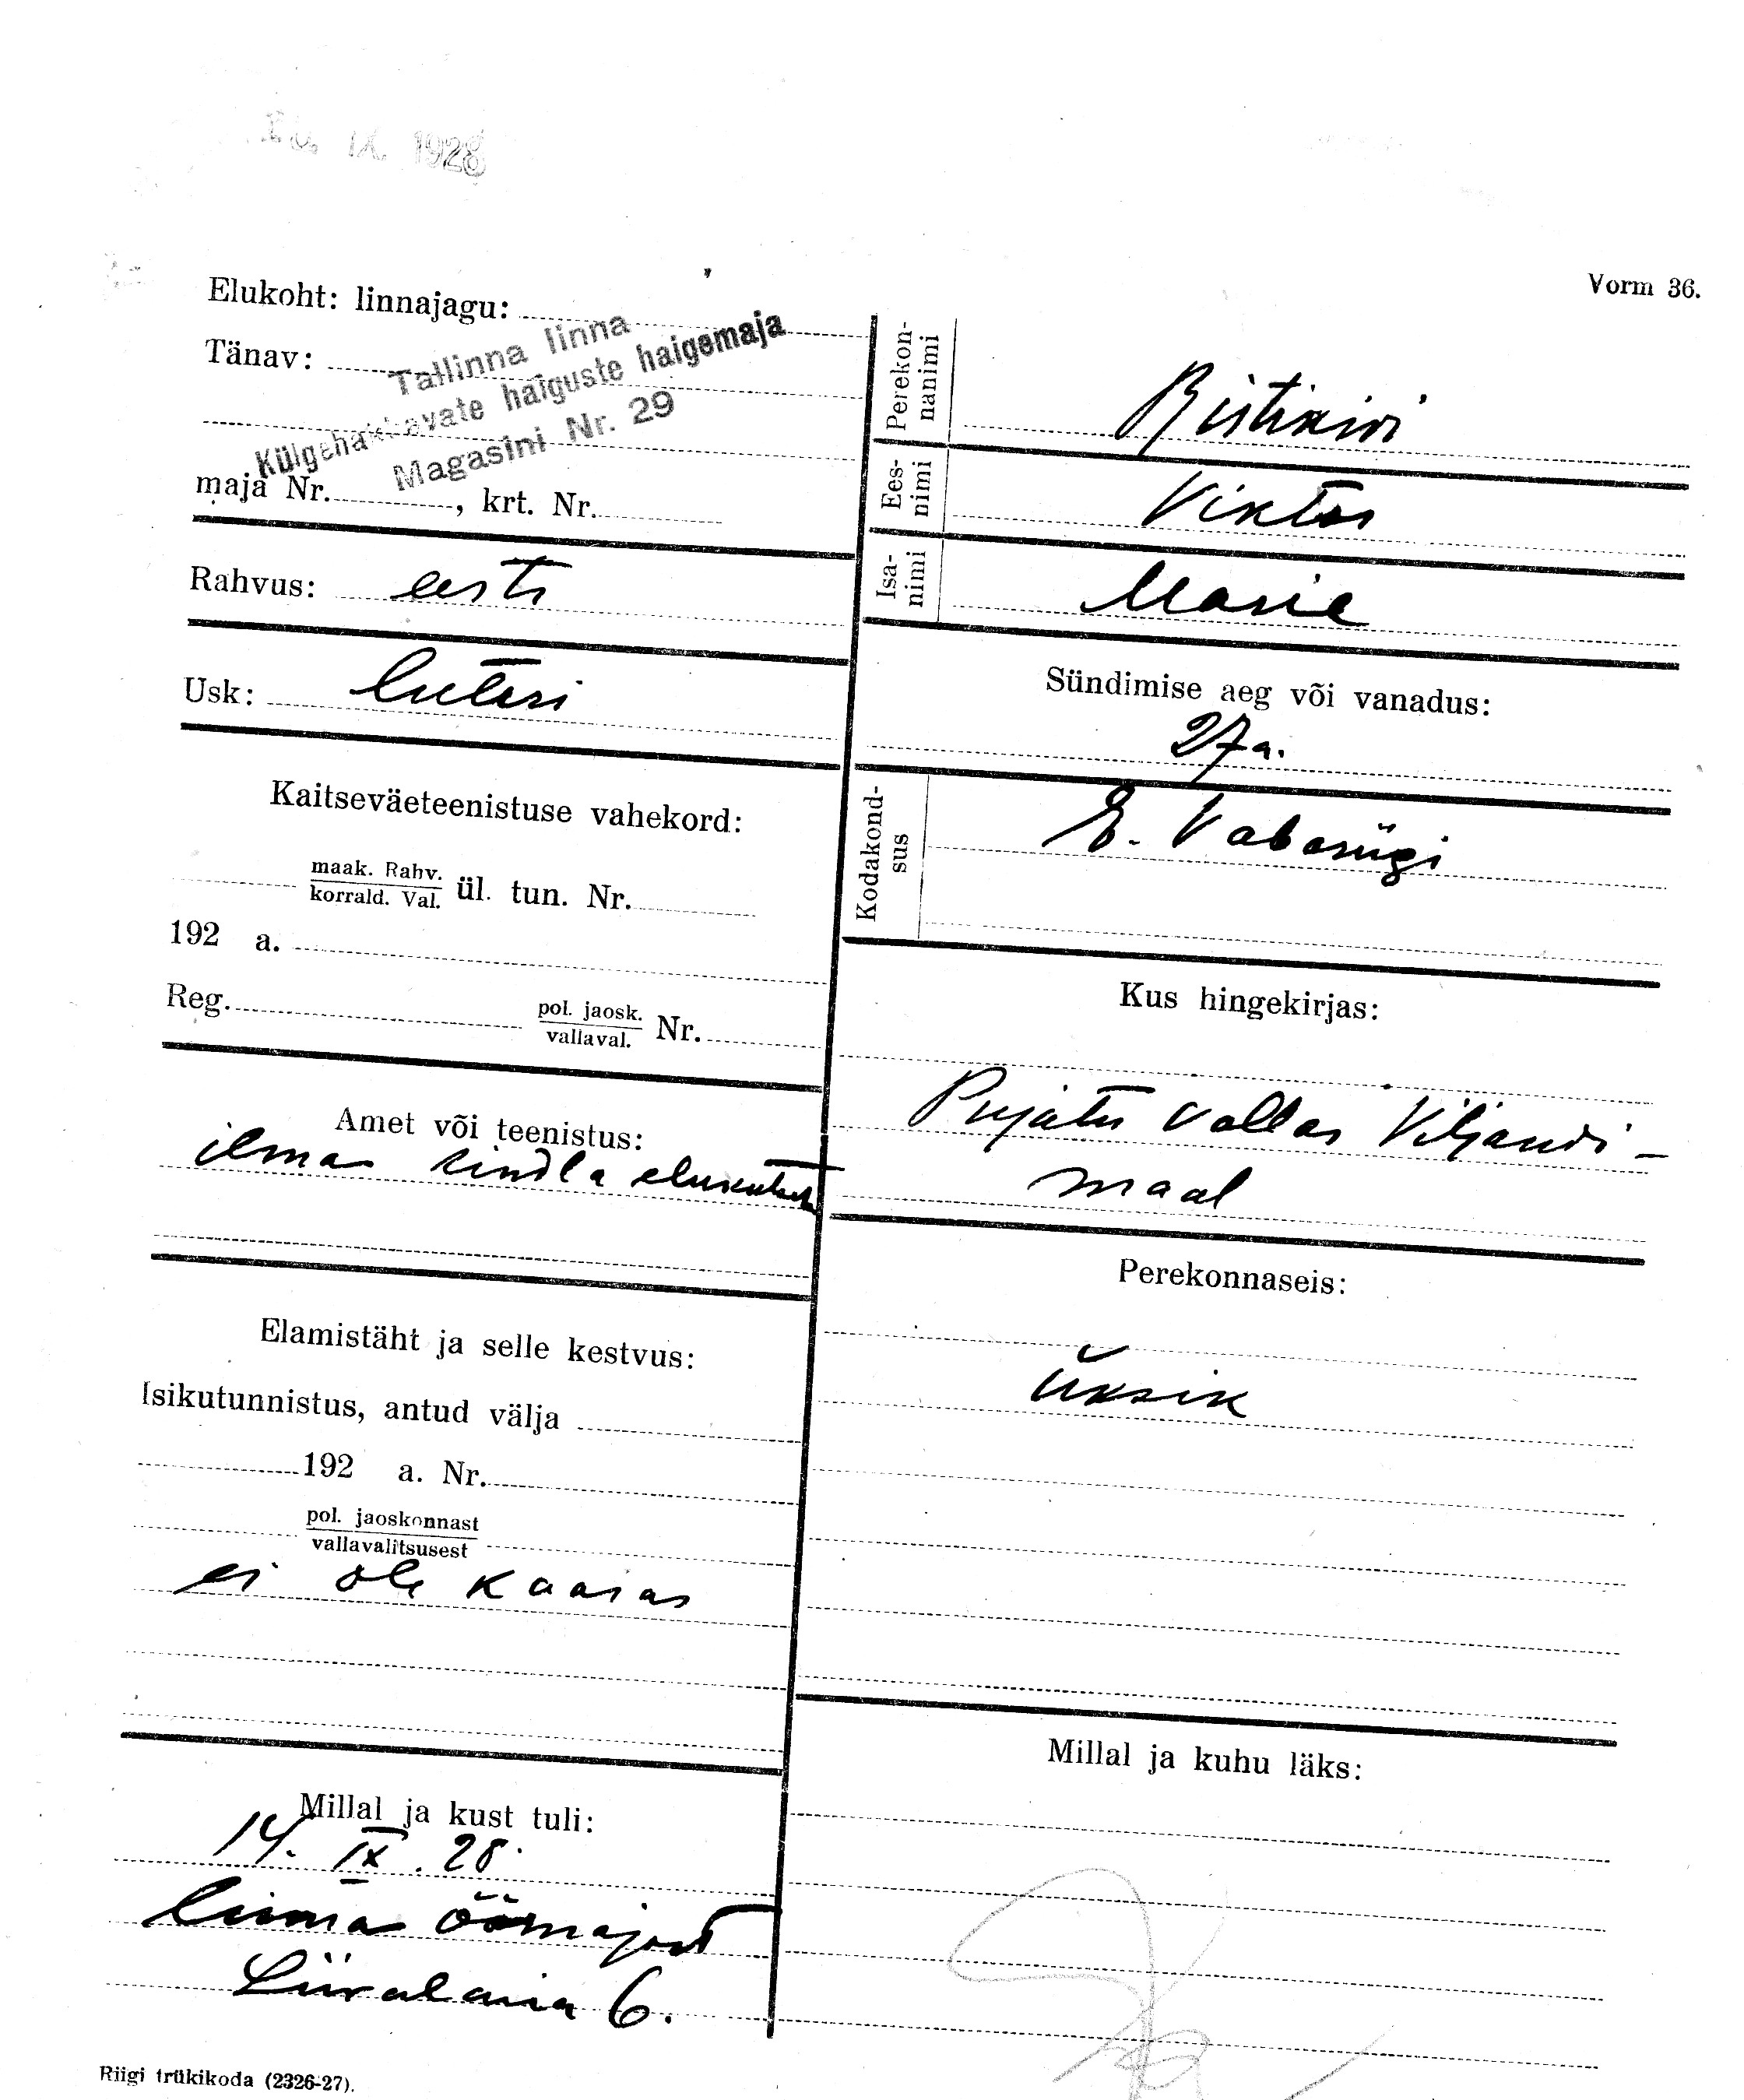 IX. 1928
Vorm 36.
Elukoht: linnajagu:
Tänav:
Tallinna linna
Külgehakkavate haiguste haigemaja
Magasini Nr. 29
maja Nr. , krt. Nr.
Rahvus: eesti
Usk: luteri
Kaitseväeteenistuse vahekord:
maak. Rahv.
korrald. Val. ül. tun. Nr.
192 a.
Reg. pol. jaosk.
vallaval. Nr.
Amet või teenistus:
ilma kindla elukutseta
Elamistäht ja selle kestvus:
Isikutunnistus, antud välja
192 a. Nr.
pol. jaoskonnast
vallavalitsusest
ei ole kaasas
Millal ja kust tuli:
14. IX. 28.
linna öömajast
Liivalaia 6.
Perekonnanimi
Ristikivi
Eesnimi
Viktor
Isanimi
Marie
Sündimise aeg või vanadus:
27 a.
Kodakondsus
E. Vabariigi
Kus hingekirjas:
Pujatu vallas Viljandi-
maal
Perekonnaseis:
Üksik
Millal ja kuhu läks:
Riigi trükikoda (2326-27).